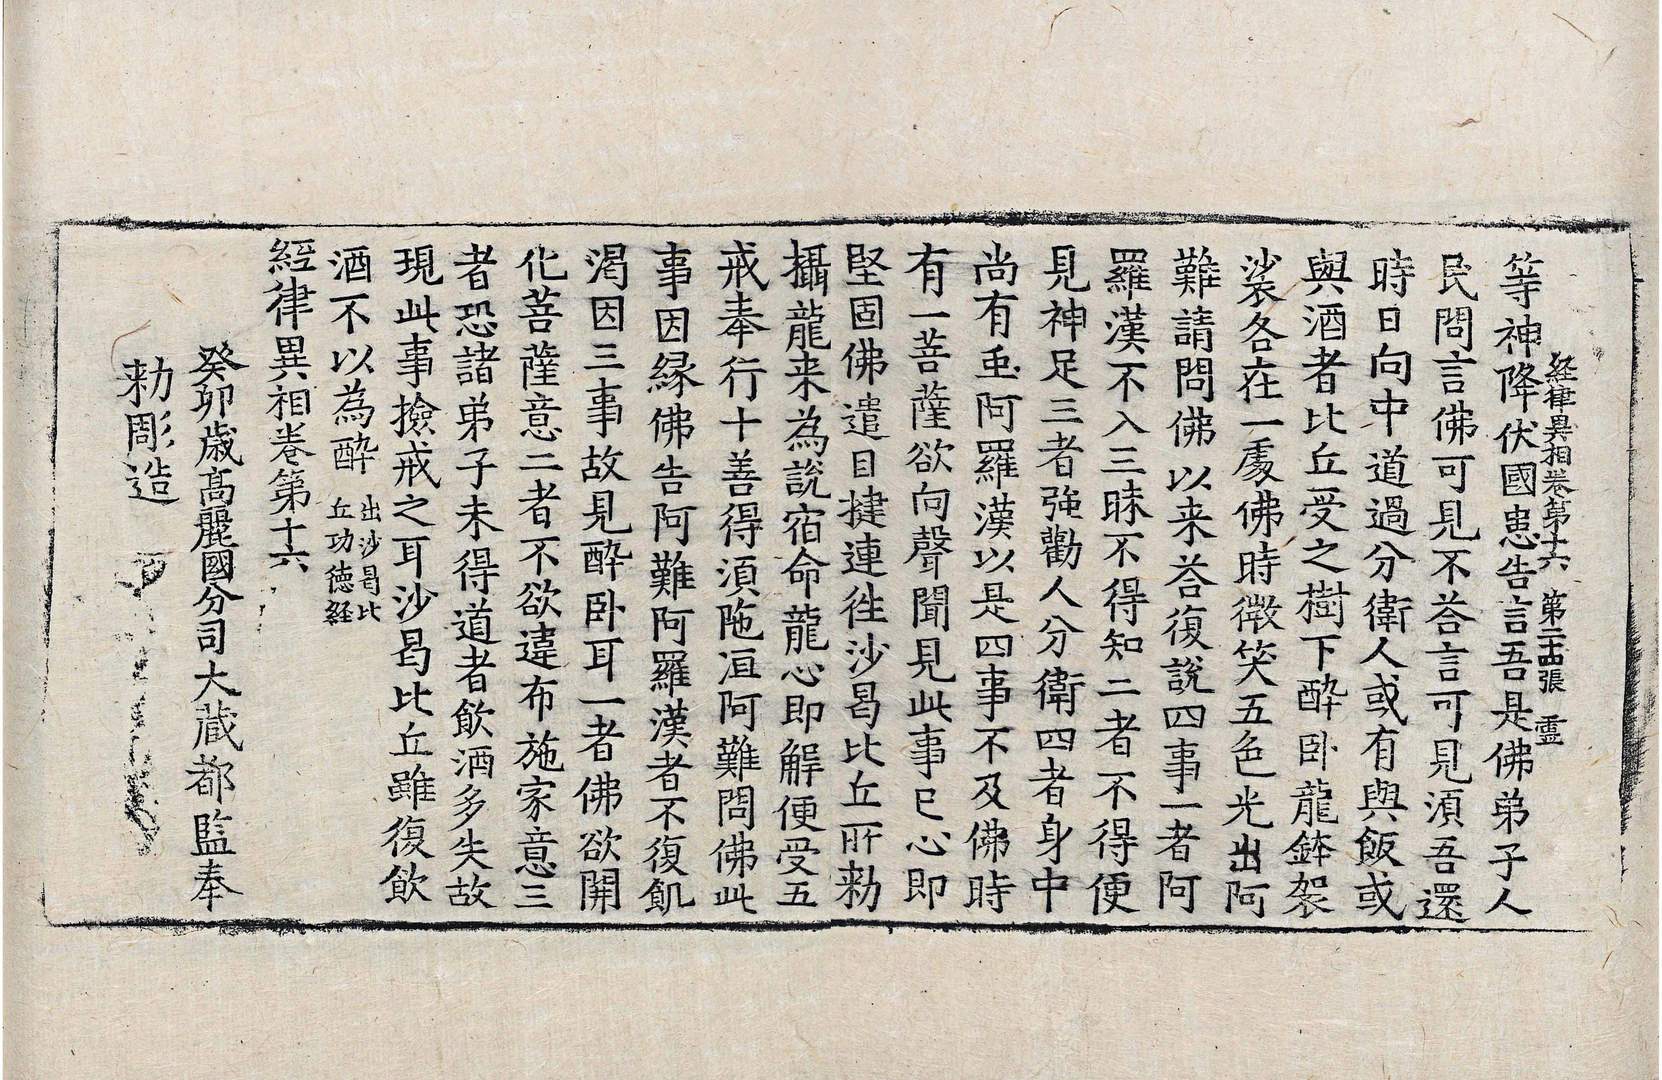 経律異相卷第十六 第二十四張 霊
等神降伏國患告言吾是佛弟子人
民問言佛可見不荅言可見湏吾還
時日向中道過分衛人或有與飯或
與酒者比丘受之樹下醉卧龍鉢袈
裟各在一處佛時微笑五色光出阿
難請問佛以来荅復說四事一者阿
羅漢不入三昧不得知二者不得便
見神足三者強勸人分衛四者身中
尚有重阿羅漢以是四事不及佛時
有一菩薩欲向聲聞見此事已心即
堅固佛遣目揵連徃沙曷比丘所勑
攝龍来為說宿命龍心即解便受五
戒奉行十善得湏陁洹阿難問佛此
事因縁佛告阿難阿羅漢者不復飢
渴因三事故見醉卧耳一者佛欲開
化菩薩意二者不欲違布施家意三
者恐諸弟子未得道者飲酒多失故
現此事撿戒之耳沙曷比丘雖復飲
酒不以為醉 出沙曷比丘功徳経
經律異相卷第十六
癸卯歳高麗國分司大蔵都監奉
勑彫造